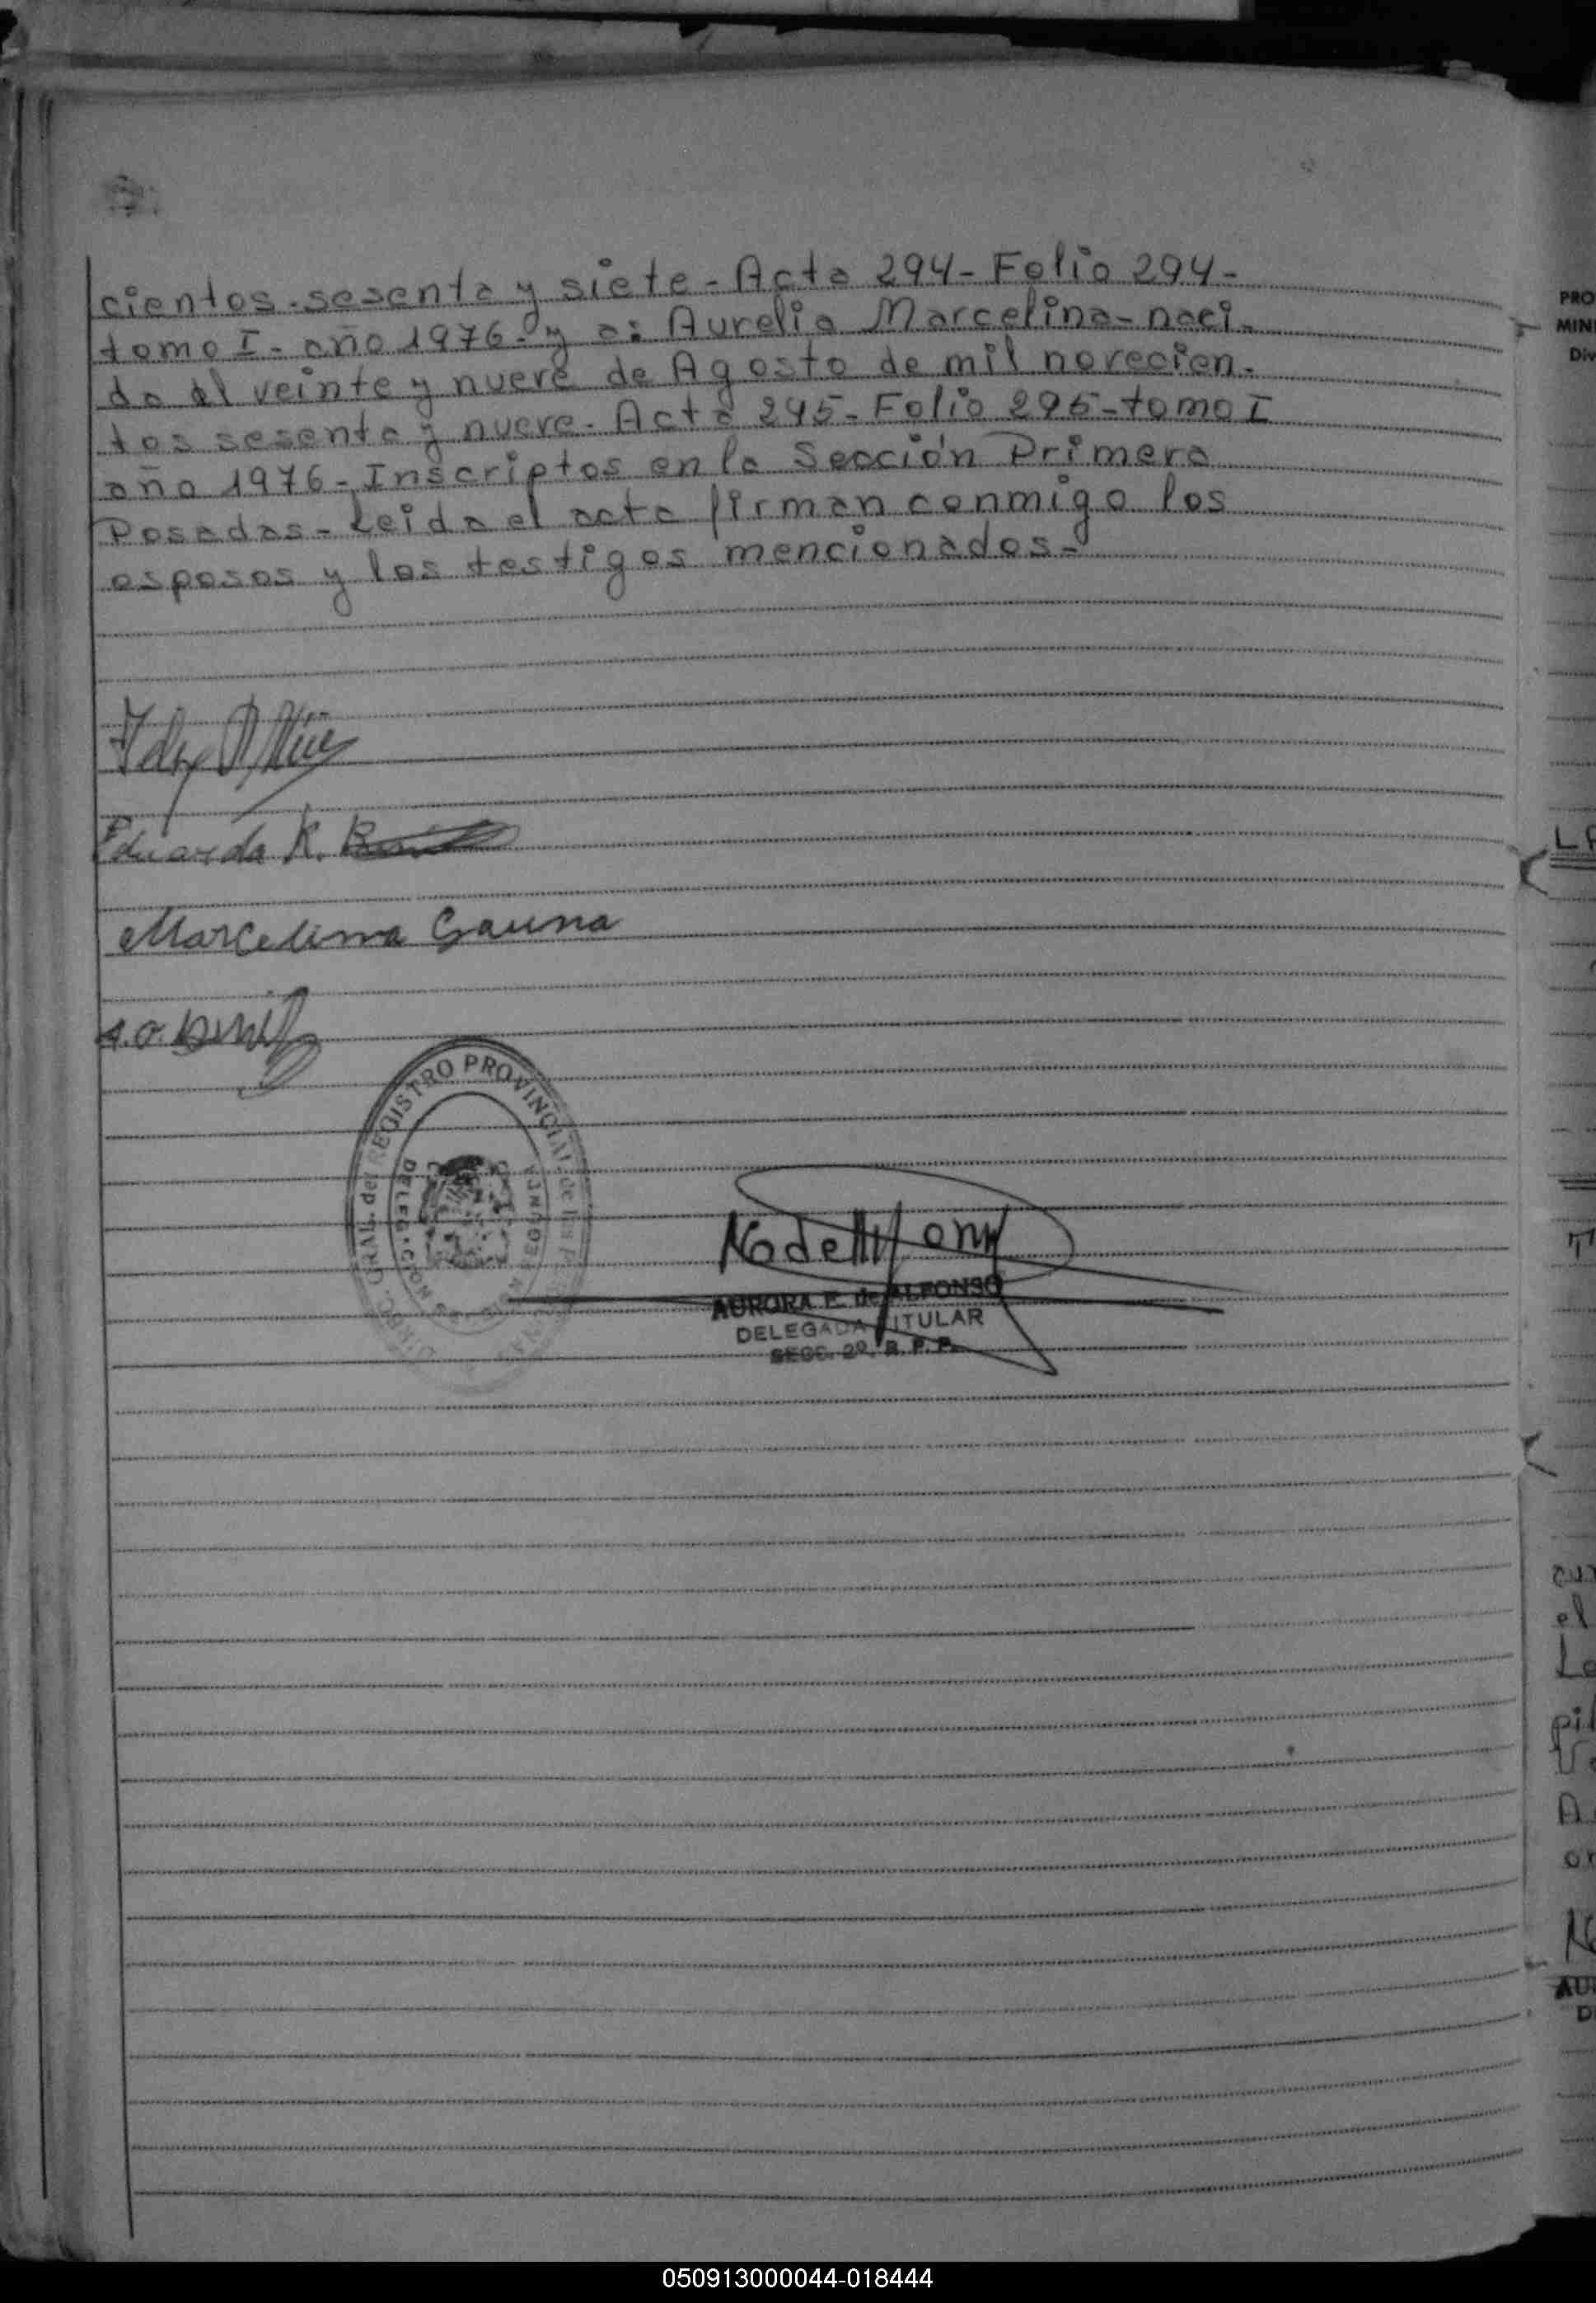 cientos sesenta y siete - Acta 294 - Folio 294 -
tomo I - año 1976 - y a: Aurelia Marcelina - naci-
da el veinte y nueve de Agosto de mil novecien-
tos sesenta y nueve - Acta 295 - Folio 295 - tomo I
año 1976 - Inscriptos en la Sección Primera
Posadas - Leida el acta firman conmigo los
esposos y los testigos mencionados -
Eduarda R.
Marcelina Gauna
REGISTRO PROVINCIAL de las
AURORA F. de ALFONSO
DELEGADA TITULAR
SECC. 2º. R. P. P.
PRO
MIN
Div
el
AU
D
050913000044-018444